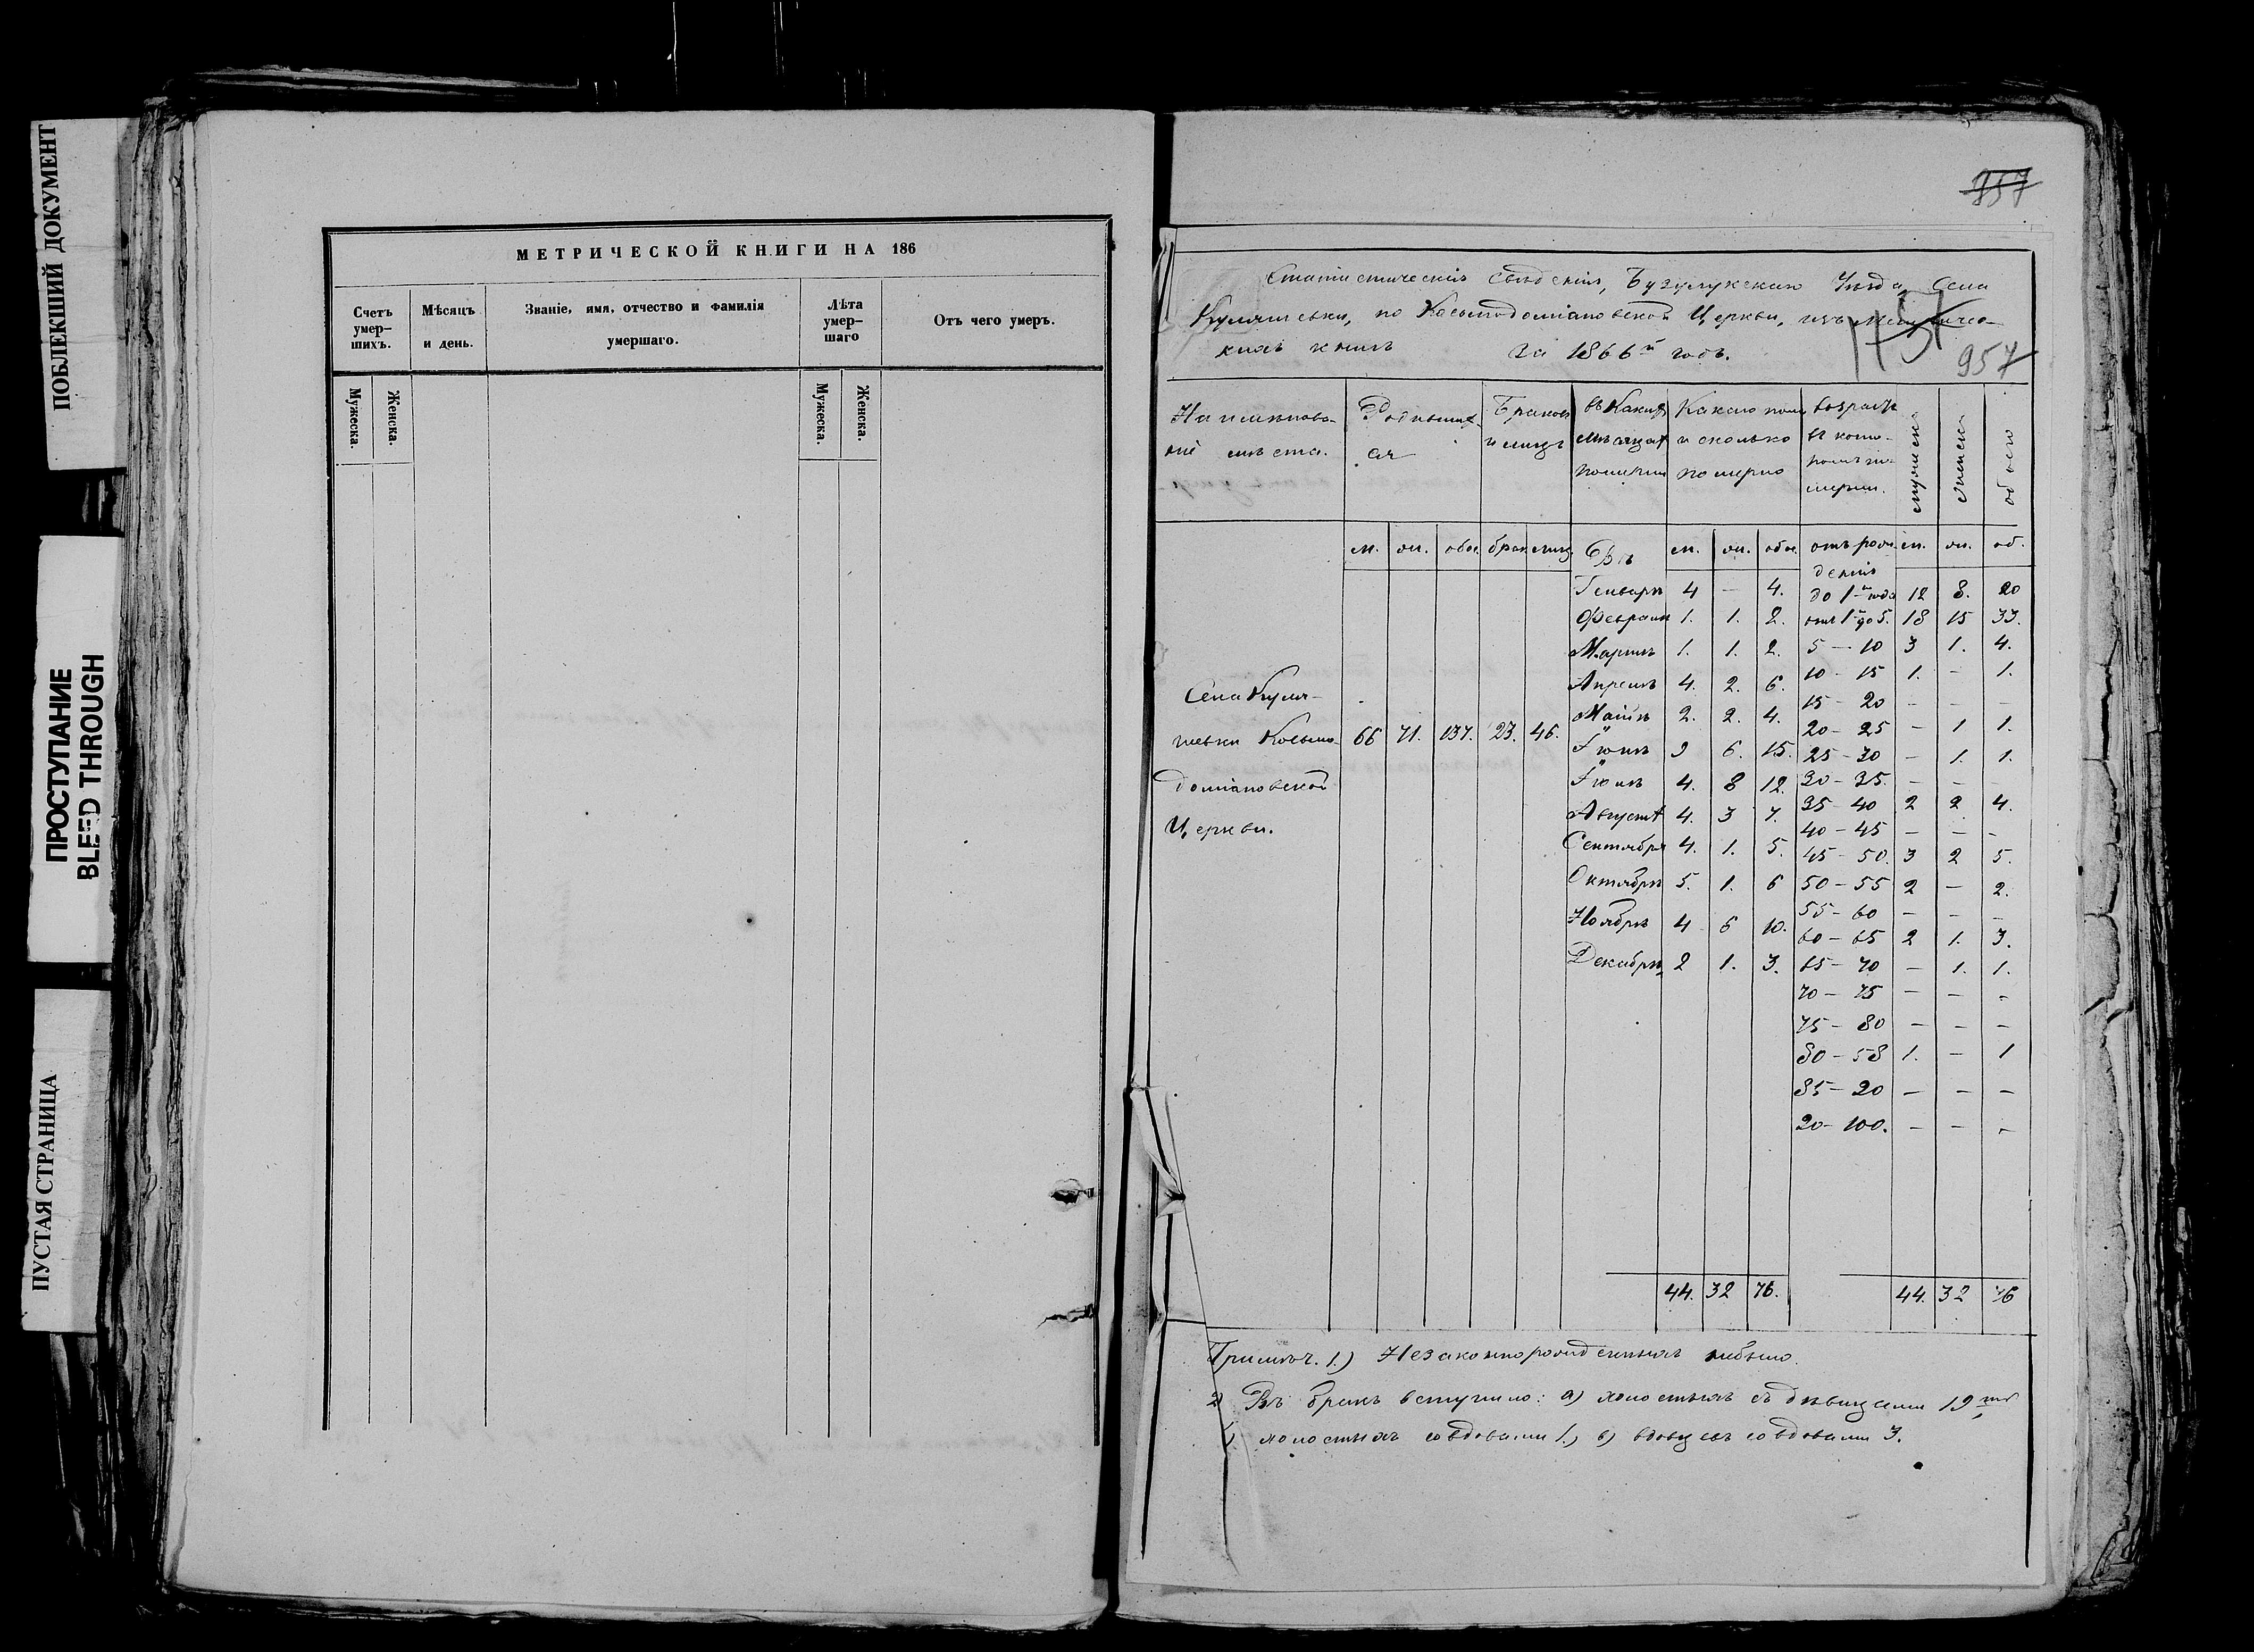 ПОБЛЕКШИЙ ДОКУМЕНТ
ПРОСТУПАНИЕ
BLEED THROUGH
ПУСТАЯ СТРАНИЦА
МЕТРИЧЕСКОЙ КНИГИ НА 186
Счетъ умер– шихъ.
Мѣсяцъ и день.
Званіе, имя, отчество и фамилія умершаго.
Лѣта умер– шаго
Отъ чего умеръ.
Мужеска. Женска. Мужеска. Женска.
957
Статистическія свѣденія, Бузулукскаго Уѣзда, Села
по Косьмодоміановской Церкви, изъ метричес–
кихъ книгъ за 1866й годъ.
957
Наименова–
ніе мѣста.
Родивших–
ся
Браковъ
и лицъ
въ Какихъ
мѣсяцах
померли
Какаго пола
и сколько
померло
возрастъ
въ кото–
ромъ по–
мерли.
мужеск.
женск.
обоего
м. ж. обое. брак. лиц. Въ м. ж. обое. отъ рож–
денія м. ж. об.
Генварѣ 4 — 4. до 1го года 12 8. 20
Февралѣ 1. 1. 2. отъ 1го до 5. 18 15 33.
Мартѣ 1. 1. 2. 5 — 10 3 1. 4.
Апрелѣ 4. 2. 6. 10 – 15 1. – 1.
Маѣ 2. 2. 4. 15 – 20 – – –
20 – 25 – 1 1.
Іюнѣ 9 6. 15. 25 – 30 – 1. 1.
Іюлѣ 4. 8 12. 30 – 35. – – –
Августѣ 4. 3 7. 35 – 40 2 2 4.
40 – 45 – – –
Сентябрѣ 4. 1. 5. 45 – 50. 3 2 5.
Октябрѣ 5. 1. 6 50 – 55 2 – 2.
55 – 60 – – –
Ноябрѣ 4 6 10. 60 – 65 2 1. 3.
Декабрѣ 2 1. 3. 65 – 70 – 1. 1.
70 – 75 – – –
75 – 80 – – –
80 – 58 1. – 1
85 – 90 – – –
90 – 100. – – –
Села
Косьмо–
доміановской
Церкви.
66 71. 137. 23. 46.
44. 32 76. 44. 32 76
Примѣч. 1.) Незаконнорожденныхъ небыло.
2) Въ бракъ вступило: а) холостыхъ съ дѣвицами 19ть
холостыхъ со вдовами 1., в) вдовцевъ со вдовами 3.